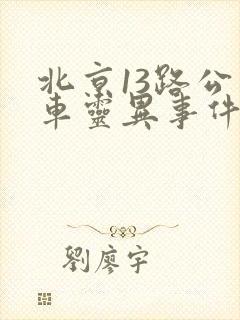 北京13路公
車靈異事件
劉廖宇